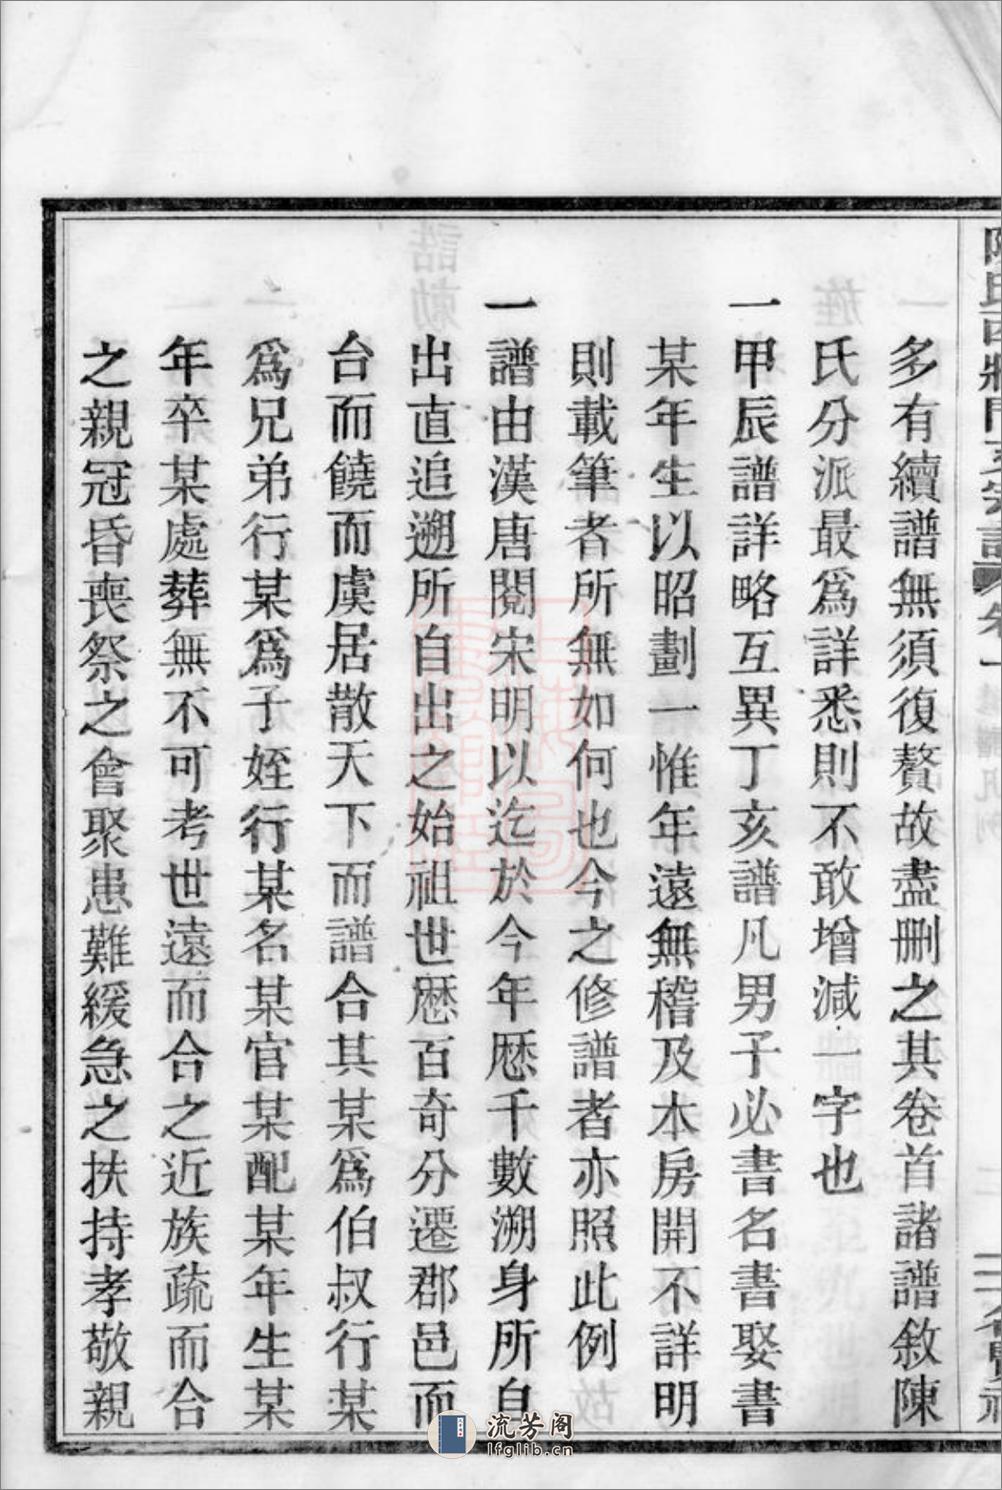 多有續譜無須復贅故盡刪之其卷首諸譜敘陳
氏分派最爲詳悉則不敢增減一字也
一甲辰譜詳略互異丁亥譜凡男子必書名書娶書
某年生以昭劃一惟年遠無稽及本房開不詳明
則載筆者所無如何也今之修譜者亦照此例
一譜由漢唐閱宋明以迄於今年歷千數溯身所自
出直追遡所自出之始祖世歷百奇分遷郡邑而
台而饒而虞居散天下而譜合其某爲伯叔行某
爲兄弟行某爲子姪行某名某官某配某年生某
年卒某處葬無不可考世遠而合之近族疏而合
之親冠昏喪祭之會聚患難緩急之扶持孝敬親
流芳阁
lfglib.cn